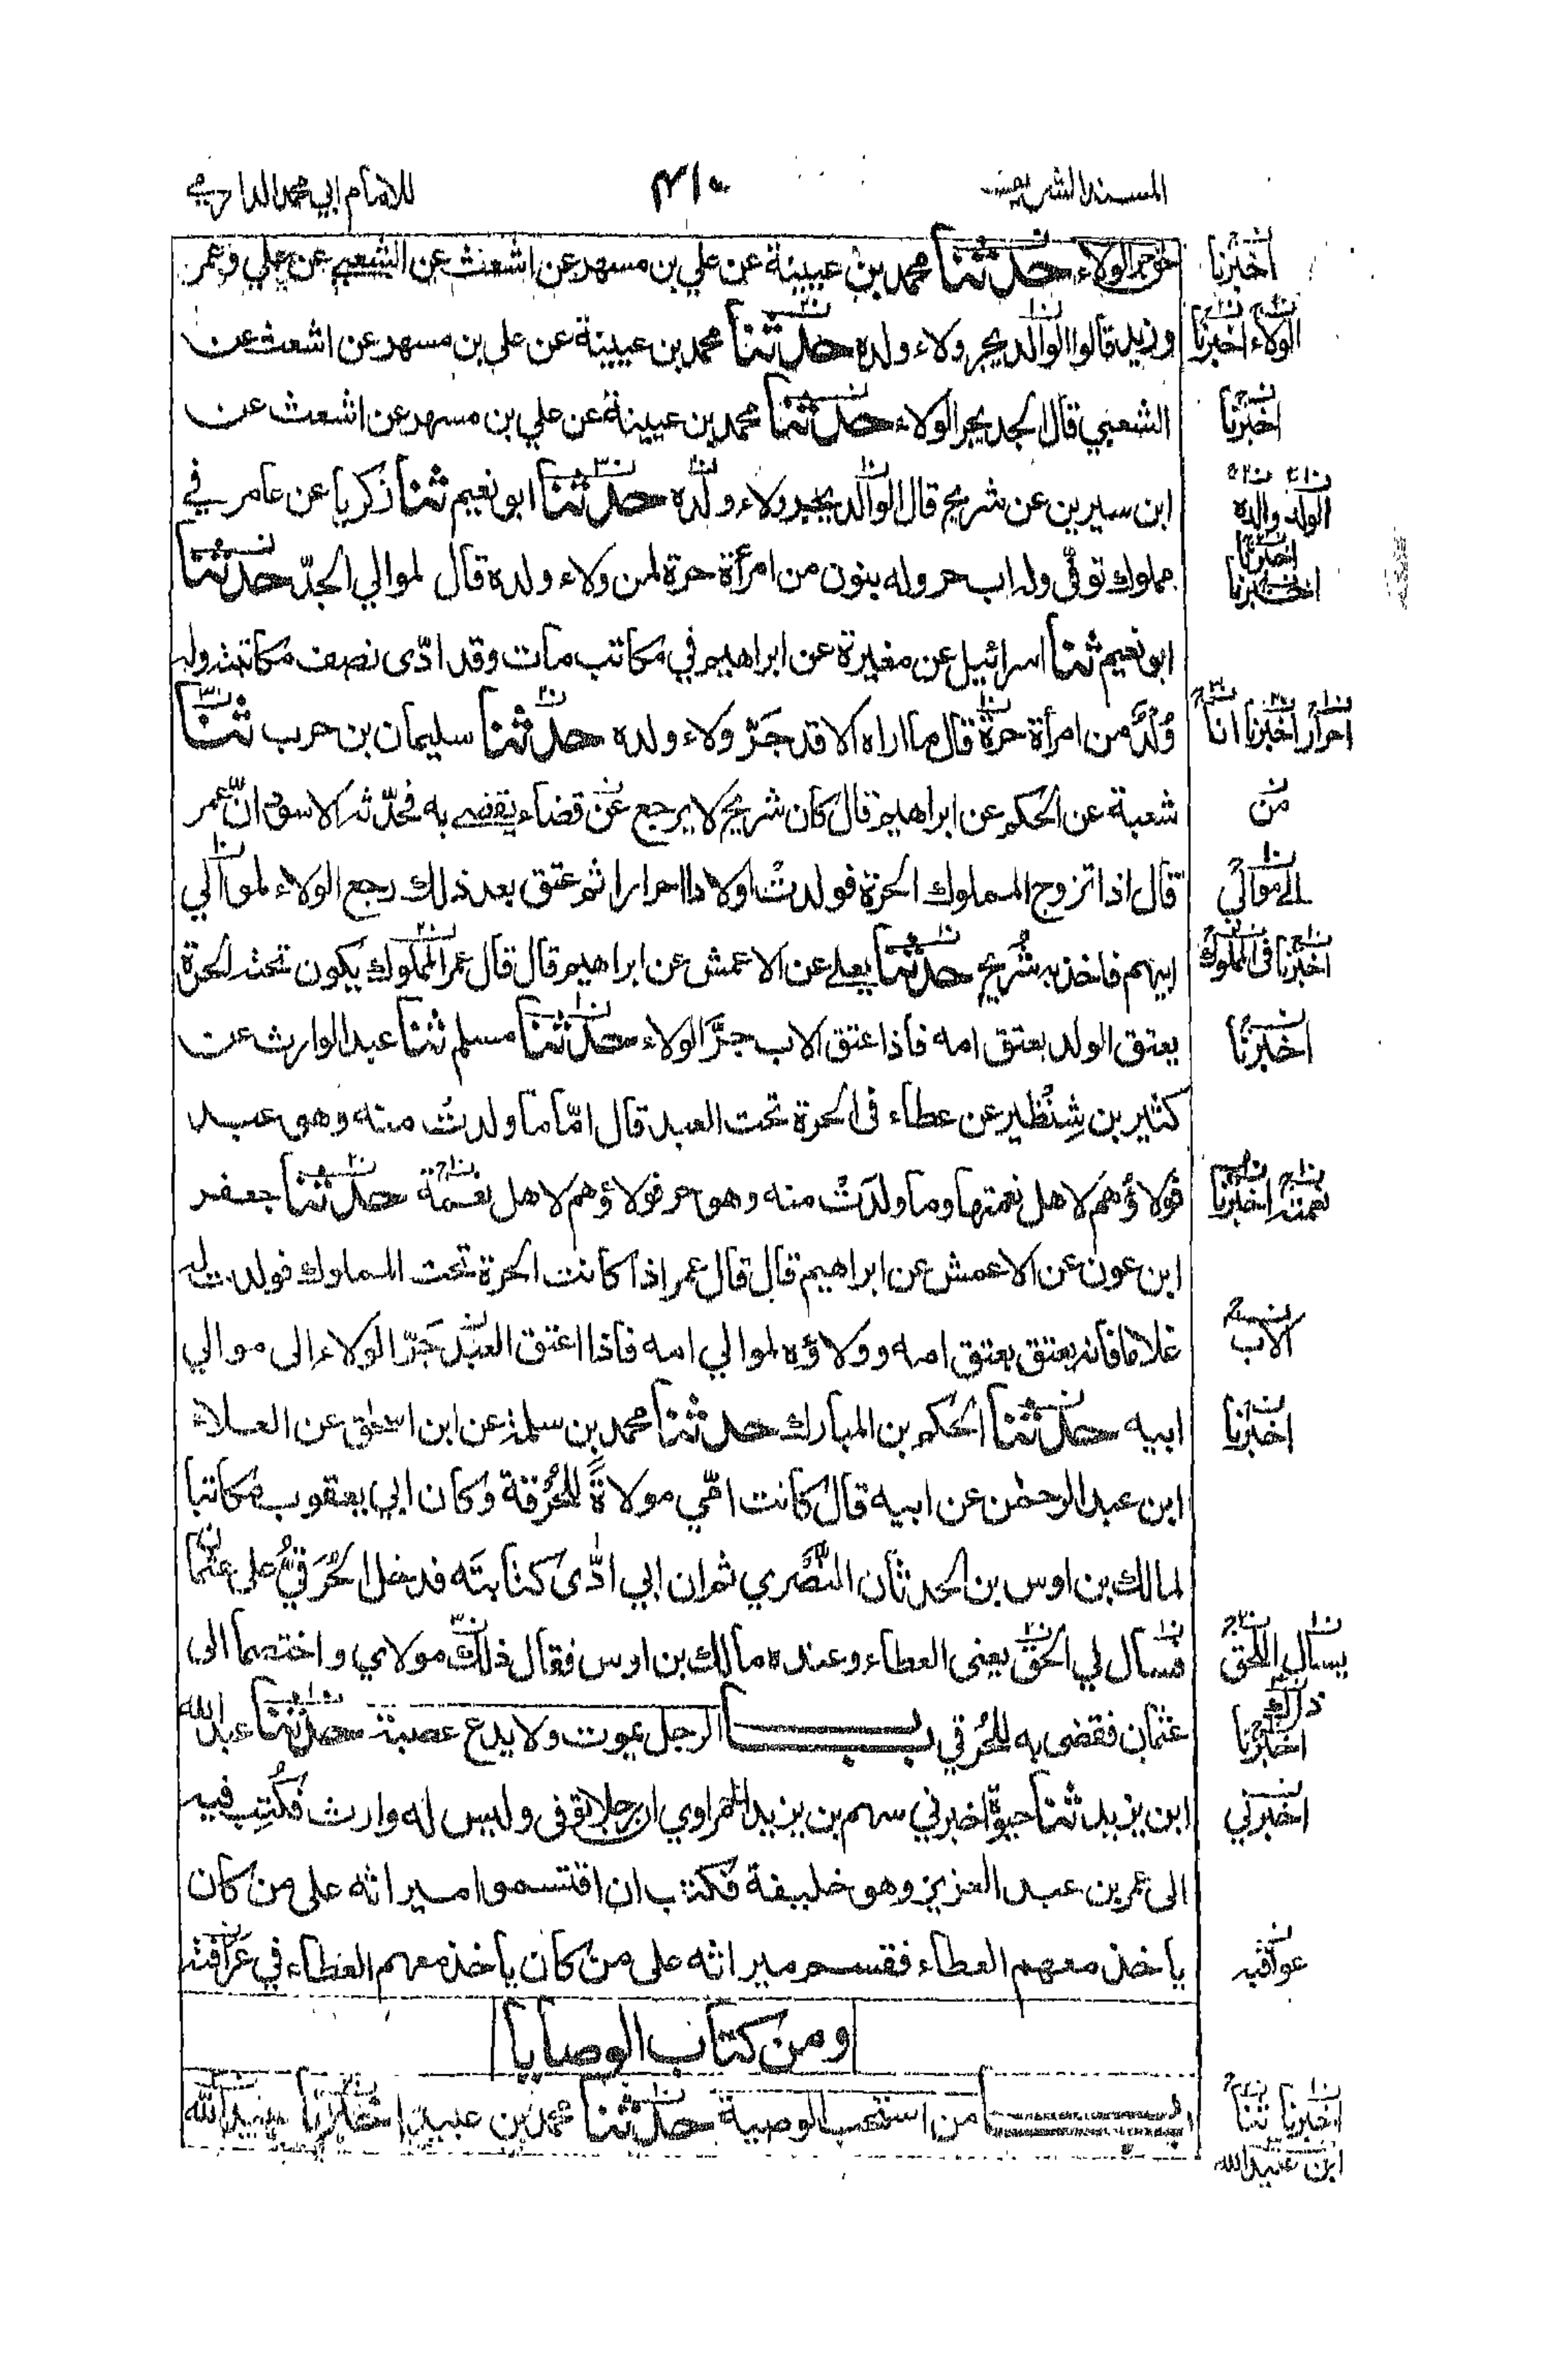 المسند الشريف
٤١٠
للامام ابي محمد الدارمي
حق جر الولاء حدثنا محمد بن عيينة عن علي بن مسهر عن اشعث عن الشعبي عن علي وعمر
وزيد قالوا الوالد يجر ولاء ولده حدثنا محمد بن عيينة عن علي بن مسهر عن اشعث عن
الشعبي قال الجد يجر الولاء حدثنا محمد بن عيينة عن علي بن مسهر عن اشعث عن
ابن سيرين عن شريح قال الوالد يجر ولاء ولده حدثنا ابو نعيم ثنا زكريا عن عامر في
مملوك توفّي وله اب حر وله بنون من امرأة حرة لمن ولاء ولده قال لموالي الجدّ حدثنا
ابو نعيم ثنا اسرائيل عن مغيرة عن ابراهيم في مكاتب مات وقد ادّى نصف مكاتبته وله
وُلْدٌ من امرأة حرة قال ما اراه الا قد جَرّ ولاء ولده حدثنا سليمان بن حرب ثنا
شعبة عن الحكم عن ابراهيم قال كان شريح لا يرجع عن قضاء يقضي به فحدّثه الاسود انّ عمر
قال اذا تزوج المملوك الحرة فولدتْ اولادا احرارا ثم عتق بعد ذلك رجع الولاء لموالي
ابيهم فاخذ به شُريح حدثنا يعلى عن الاعمش عن ابراهيم قال قال عمر المملوك يكون تحته الحرة
يعتق الولد بعتق امه فاذا عتق الاب جرَّ الولاء حدثنا مسلم ثنا عبد الوارث عن
كثير بن شِنْظير عن عطاء فى الحرة تحت العبد قال امّا ما ولدتْ منه وهو عبد
فولاؤهم لاهل نعمتها وما ولدتْ منه وهو حر فولاؤهم لاهل نعمة حدثنا جعفر
ابن عون عن الاعمش عن ابراهيم قال قال عمر اذا كانت الحرة تحت المملوك فولدت له
غلاما فانه يعتق بعتق امه وولاؤه لموالي امه فاذا اعتق العبد جَرّ الولاء الى موالي
ابيه حدثنا الحكم بن المبارك حدثنا محمد بن سلمة عن ابن اسحٰق عن العلاء
ابن عبد الرحمٰن عن ابيه قال كانت امّي مولاةً للحُرقة وكان ابي يعقوب مكاتبا
لمالك بن اوس بن الحدثان النَّصْري ثم ان ابي ادّى كتابتَه فدخل الحُرَقيُّ على عثمان
فسأل لي الحق يعنى العطاء وعنده مالك بن اوس فقال ذلك مولاي واختصما الى
عثمان فقضى به للحُرقي باب الرجل يموت ولا يدع عصبة حدثنا عبد الله
ابن يزيد ثنا حيوة اخبرني سهم بن يزيد الحمراوي ان رجلا توفى وليس له وارث فكُتِب فيه
الى عمر بن عبد العزيز وهو خليفة فكتب ان اقتسموا ميراثه على من كان
ياخذ معهم العطاء فقسم ميراثه على من كان ياخذ معهم العطاء في عرافته
ومن كتاب الوصايا
باب من استحب الوصية حدثنا محمد بن عبيد اخبرنا عبيد الله
اخبرنا
الولاء اخبرنا
اخبرنا
الولد والده
اخبرنا
اخبرنا
احرار اخبرنا انا
من
الى موالي
اخبرنا فى المملوك
اخبرنا
نعمته اخبرنا
الاب
اخبرنا
يسأل الحق
ذاك
اخبرنا
اخبرني
عرافته
اخبرنا ثنا
ابن عبيد الله